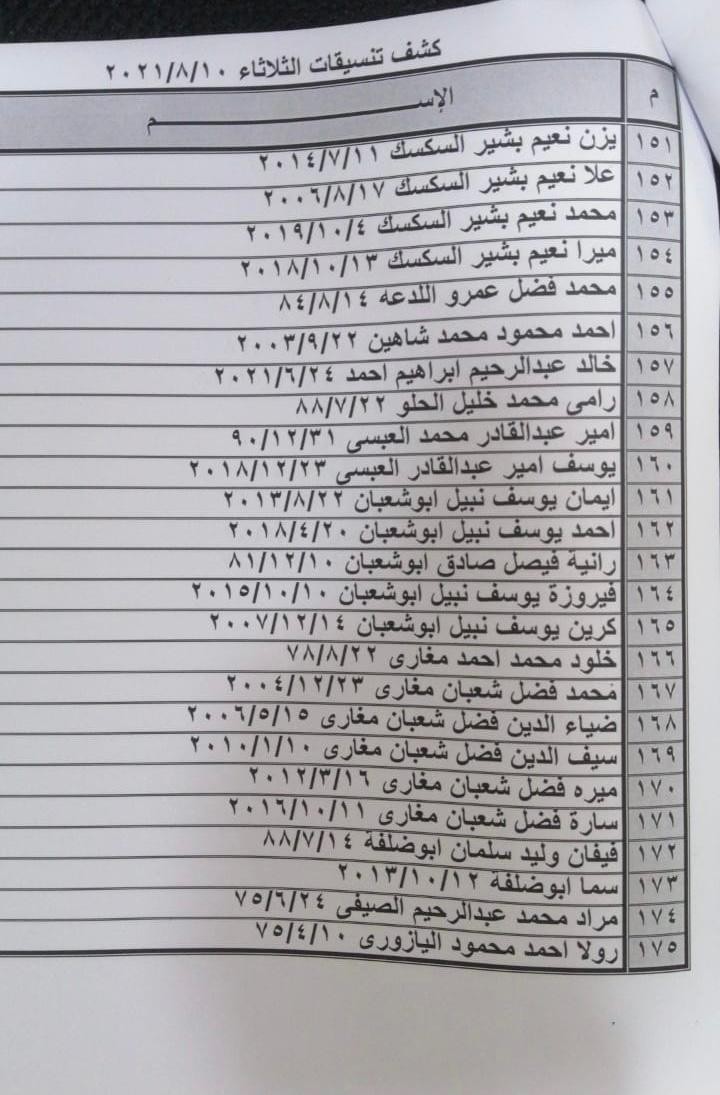 كشف تنسيقات الثلاثاء ٢٠٢١/٨/١٠
م الإســـــــــــــــــــــم
١٥١ يزن نعيم بشير السكسك ٢٠١٤/٧/١١
١٥٢ علا نعيم بشير السكسك ٢٠٠٦/٨/١٧
١٥٣ محمد نعيم بشير السكسك ٢٠١٩/١٠/٤
١٥٤ ميرا نعيم بشير السكسك ٢٠١٨/١٠/١٣
١٥٥ محمد فضل عمرو اللدعه ٨٤/٨/١٤
١٥٦ احمد محمود محمد شاهين ٢٠٠٣/٩/٢٢
١٥٧ خالد عبدالرحيم ابراهيم احمد ٢٠٢١/٦/٢٤
١٥٨ رامى محمد خليل الحلو ٨٨/٧/٢٢
١٥٩ امير عبدالقادر محمد العبسى ٩٠/١٢/٣١
١٦٠ يوسف امير عبدالقادر العبسى ٢٠١٨/١٢/٢٣
١٦١ ايمان يوسف نبيل ابوشعبان ٢٠١٣/٨/٢٢
١٦٢ احمد يوسف نبيل ابوشعبان ٢٠١٨/٤/٢٠
١٦٣ رانية فيصل صادق ابوشعبان ٨١/١٢/١٠
١٦٤ فيروزة يوسف نبيل ابوشعبان ٢٠١٥/١٠/١٠
١٦٥ كرين يوسف نبيل ابوشعبان ٢٠٠٧/١٢/١٤
١٦٦ خلود محمد احمد مغارى ٧٨/٨/٢٢
١٦٧ محمد فضل شعبان مغارى ٢٠٠٤/١٢/٢٣
١٦٨ ضياء الدين فضل شعبان مغارى ٢٠٠٦/٥/١٥
١٦٩ سيف الدين فضل شعبان مغارى ٢٠١٠/١/١٠
١٧٠ ميره فضل شعبان مغارى ٢٠١٢/٣/١٦
١٧١ سارة فضل شعبان مغارى ٢٠١٦/١٠/١١
١٧٢ فيفان وليد سلمان ابوضلفة ٨٨/٧/١٤
١٧٣ سما ابوضلفة ٢٠١٣/١٠/١٢
١٧٤ مراد محمد عبدالرحيم الصيفى ٧٥/٦/٢٤
١٧٥ رولا احمد محمود اليازورى ٧٥/٤/١٠